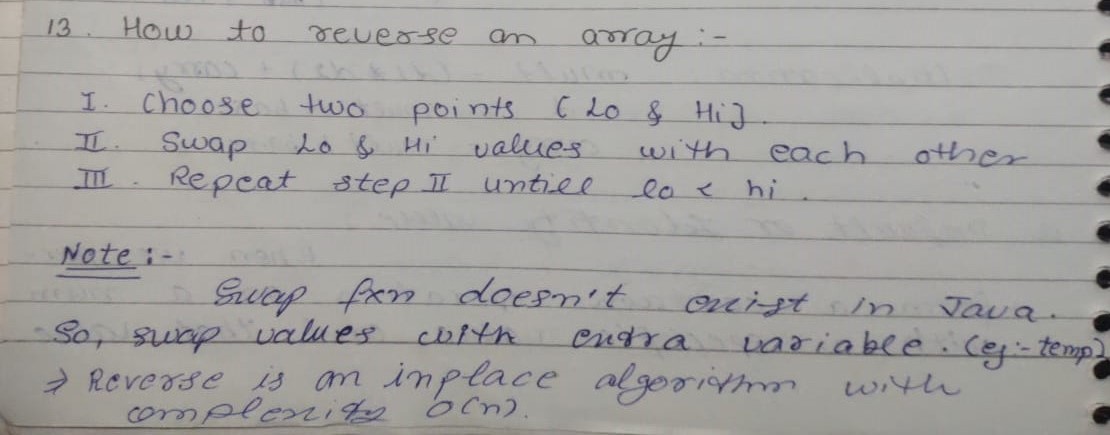 13. How to reverse an array :-
I. Choose two points [Lo & Hi].
II. Swap Lo & Hi values with each other
III. Repeat step II untill lo < hi.
Note :-
Swap fxn doesn't exist in Java.
So, swap values with extra variable. (eg:- temp)
⇒ Reverse is an inplace algorithm with
complexity O(n).